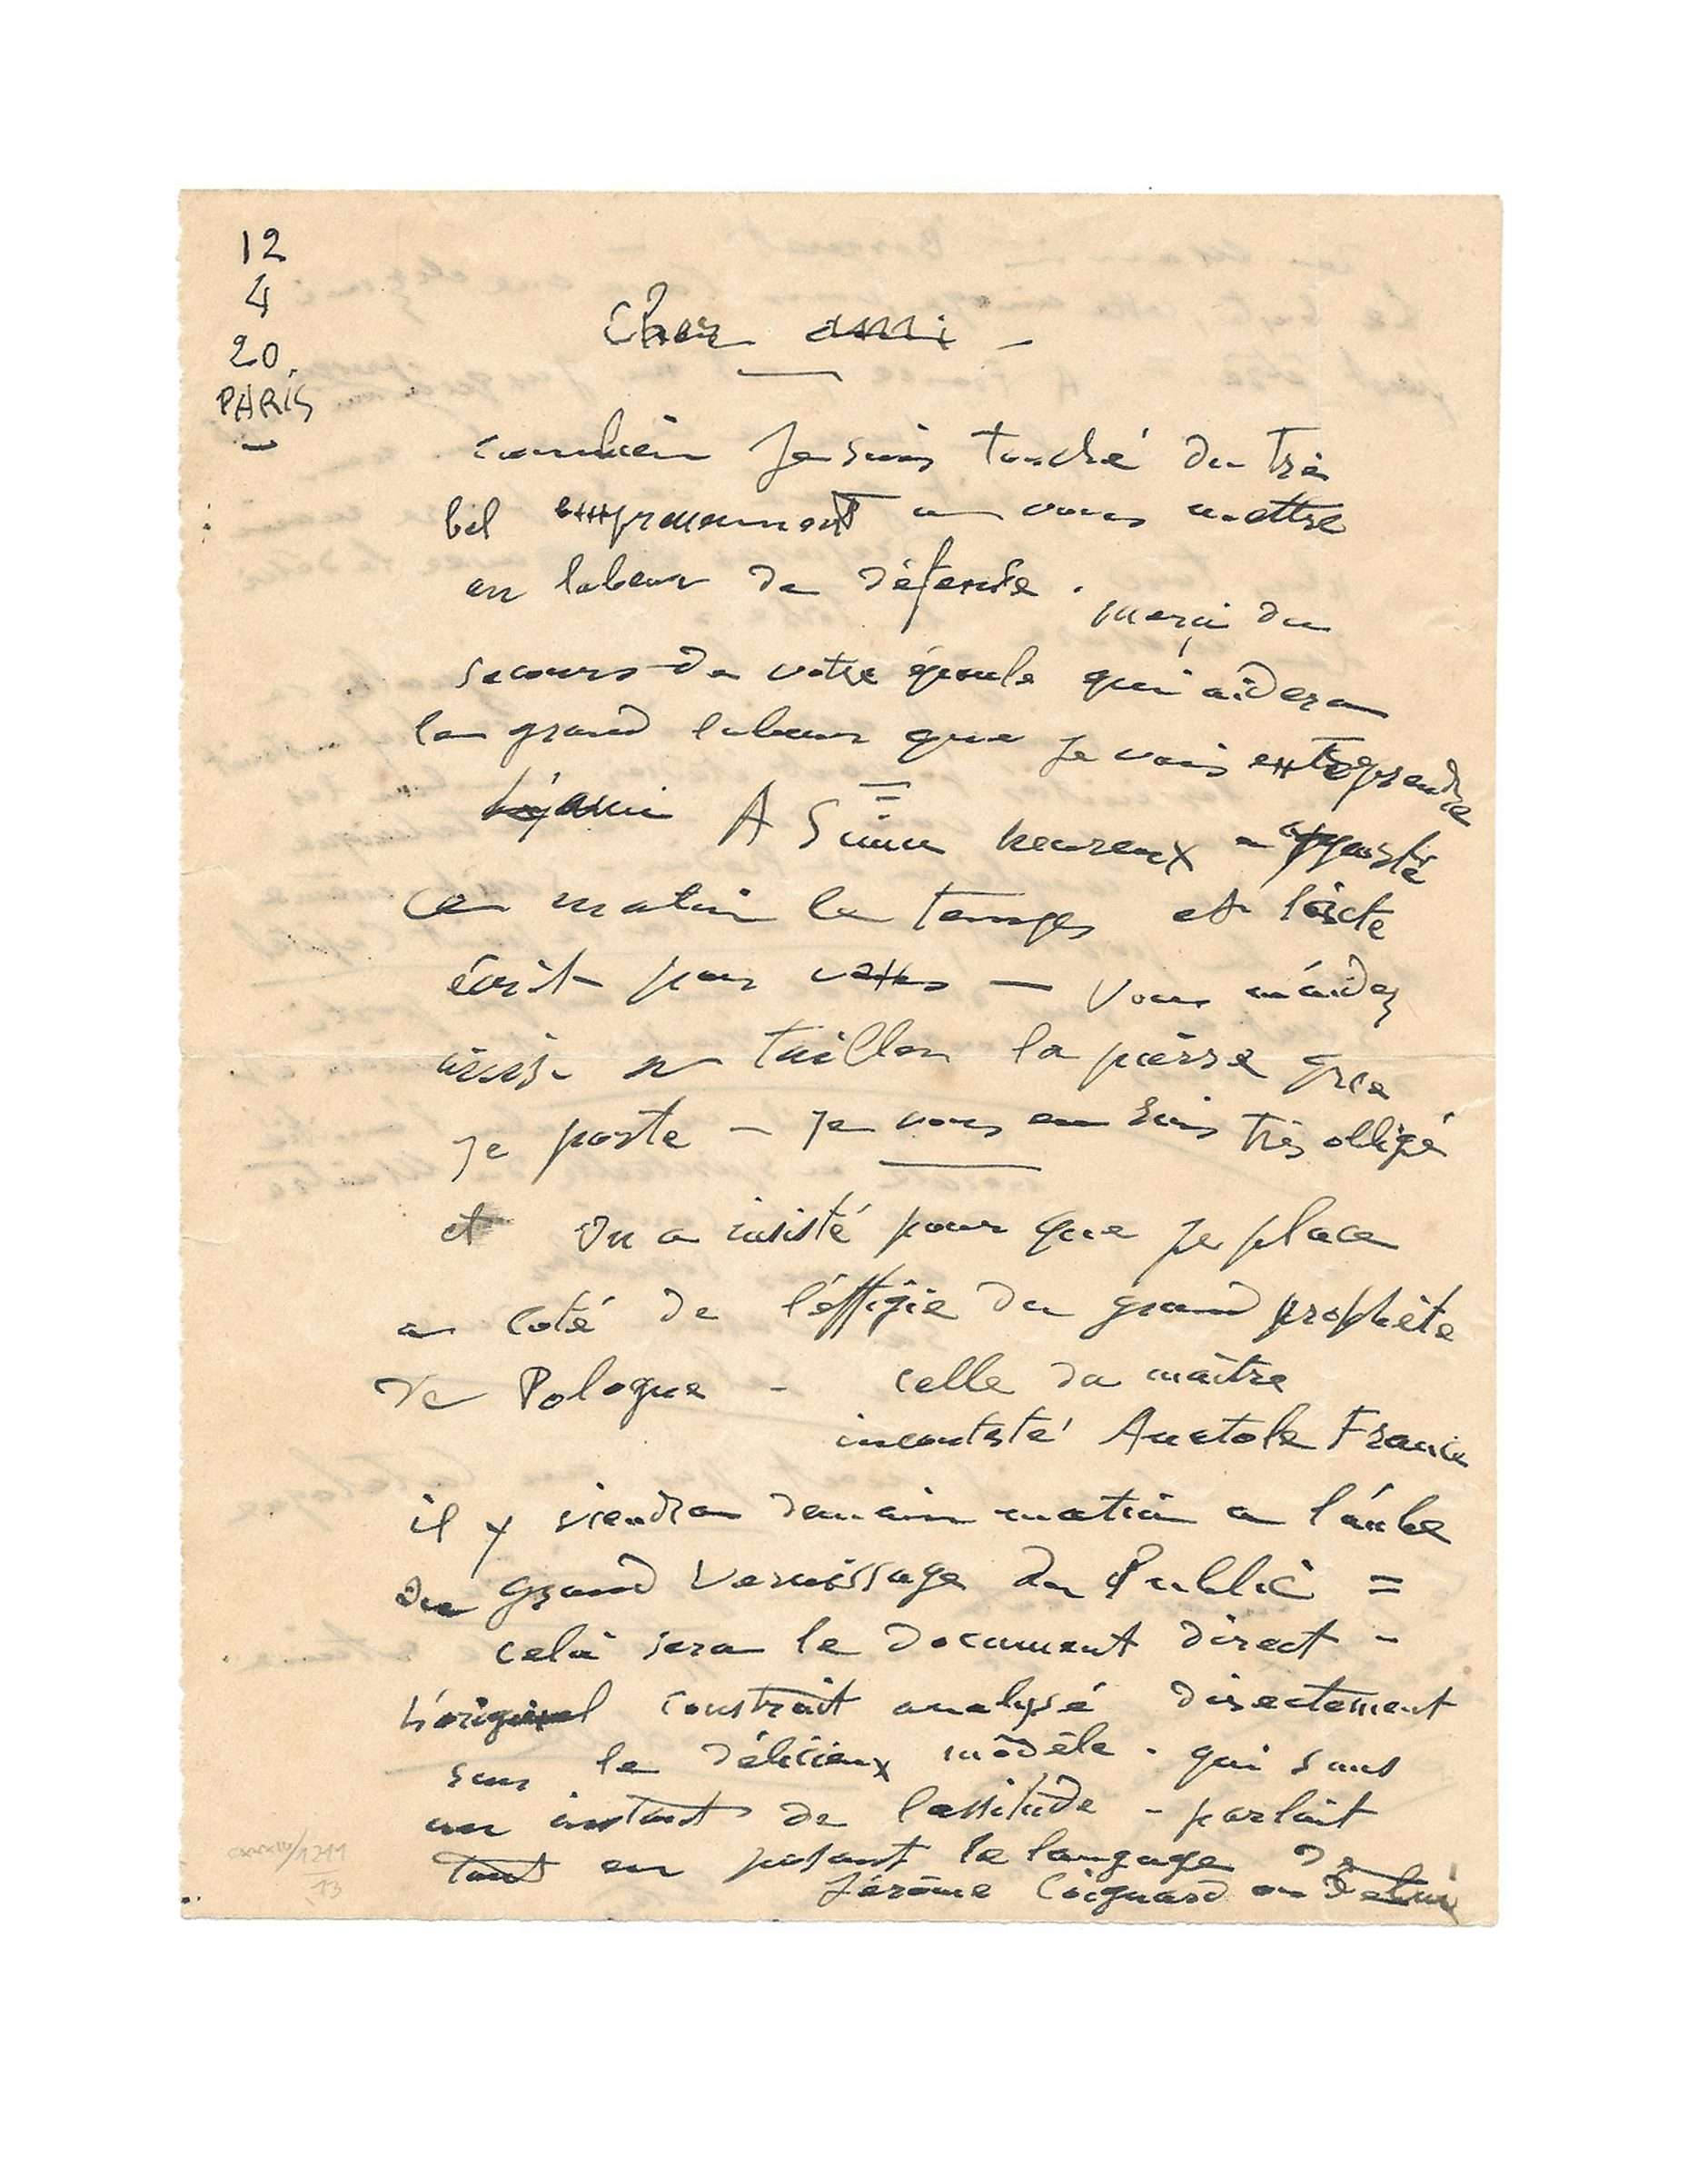 12
4
20.
PARIS
Cher ami -
combien Je suis touché du très
bel empressement a vous mettre
en labeur de défense. merci du
secours de votre épaule qui aidera
le grand labeur que je vais entreprendre
L'ami A Sima heureux a apporté
ce matin le temps et l'acte
écrit par vous — Vous m'aidez
ainsi a tailler la pierre que
je porte - je vous en suis très obligé
et On a insisté pour que je place
a coté de l'éffigie du grand prophète
de Pologne - celle du maître
incontesté Anatole France
il y viendra demain matin a l'aube
du grand Vernissage du Public =
celà sera le document direct -
L'original construit analysé directement
sur le délicieux modèle - qui sans
un instant de lassitude - parlait
tout en posant le langage de
Jérôme Coignard ou